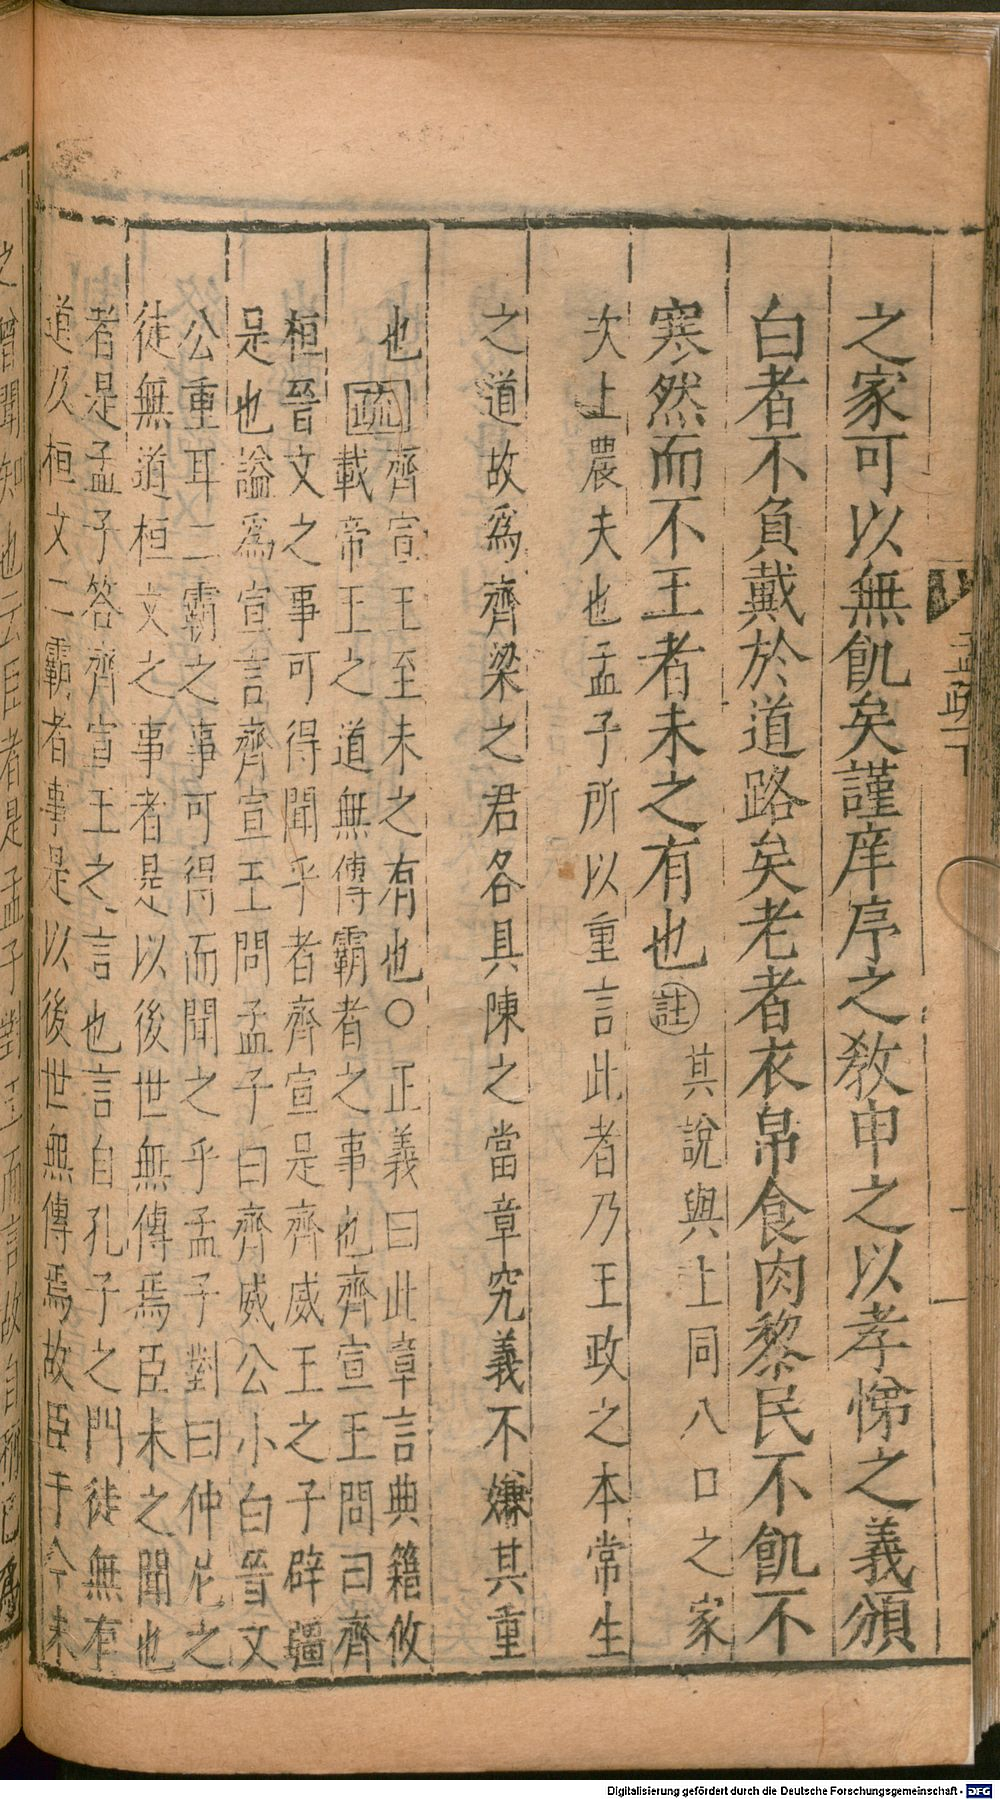 之家可以無飢矣謹庠序之教申之以孝悌之義頒
白者不負戴於道路矣老者衣帛食肉黎民不飢不
寒然而不王者未之有也註其說與上同八口之家
次上農夫也孟子所以重言此者乃王政之本常生
之道故爲齊梁之君各具陳之當章究義不嫌其重
也疏齊宣王至未之有也○正義曰此章言典籍攸
載帝王之道無傳霸者之事也齊宣王問曰齊
桓晉文之事可得聞乎者齊宣是齊威王之子辟疆
是也謚爲宣言齊宣王問孟子曰齊威公小白晉文
公重耳二霸之事可得而聞之乎孟子對曰仲尼之
徒無道桓文之事者是以後世無傳焉臣未之聞也
者是孟子答齊宣王之言也言自孔子之門徒無有
道及桓文二霸者事是以後世無傳焉故臣于今未
之曾聞知也云臣者是孟子對王而言故自稱己爲
Digitalisierung gefördert durch die Deutsche Forschungsgemeinschaft - DFG